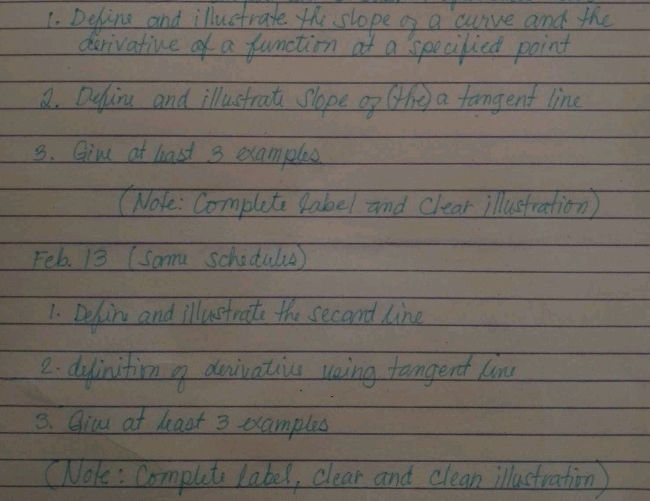 1. Define and illustrate the slope of a curve and the
derivative of a function at a specified point
2. Define and illustrate Slope of (the) a tangent line
3. Give at least 3 examples
(Note: Complete Label and Clear illustration)
Feb. 13 (Same schedules)
1. Define and illustrate the secant line
2. definition of derivative using tangent line
3. Give at least 3 examples
(Note: Complete label, clear and clean illustration)